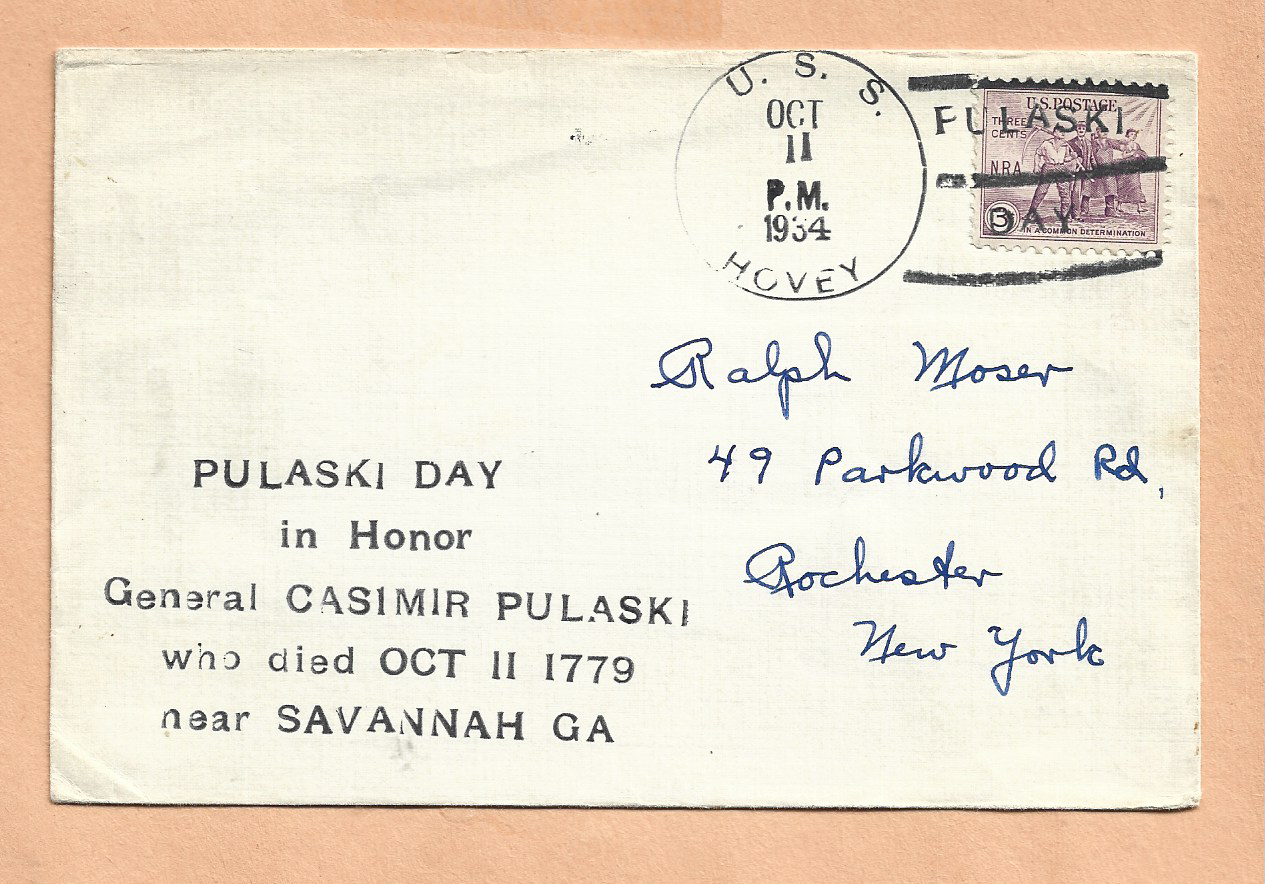 U. S. S.
OCT
11
P.M.
1934
HOVEY
PULASKI
DAY
U.S. POSTAGE
THREE
CENTS
N.R.A.
3
IN A COMMON DETERMINATION
Ralph Moser
49 Parkwood Rd,
Rochester
New York
PULASKI DAY
in Honor
General CASIMIR PULASKI
who died OCT 11 1779
near SAVANNAH GA